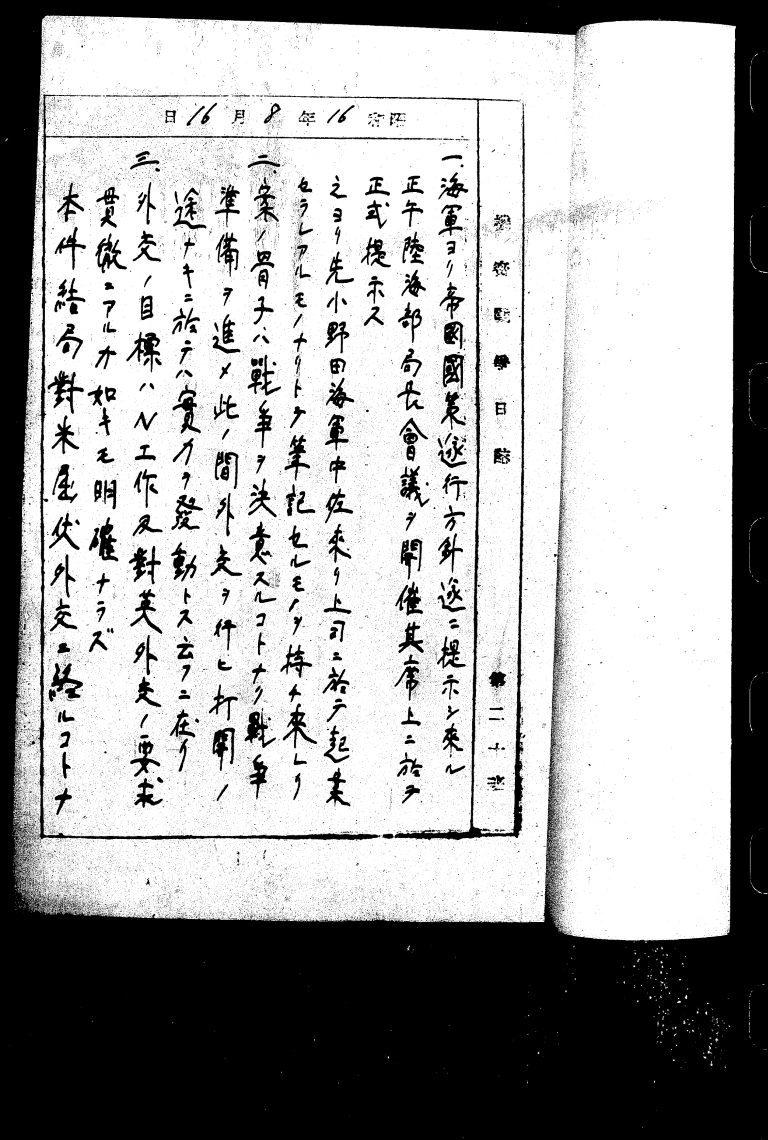 昭和16年8月16日
機密戰爭日誌
第二十班
一、海軍ヨリ帝國國策遂行方針遂ニ提示シ來ル
正午陸海部局長會議ヲ開催其席上ニ於テ
正式提示ス
之ヨリ先小野田海軍中佐來リ上司ニ於テ起案
セラレアルモノナリトテ筆記セルモノヲ持チ來レリ
二、案ノ骨子ハ戰爭ヲ決意スルコトナク戰爭
準備ヲ進メ此ノ間外交ヲ行ヒ打開ノ
途ナキニ於テハ實力ヲ發動トス云フニ在リ
三、外交ノ目標ハN工作及對英外交ノ要求
貫徹ニアルカ如キモ明確ナラズ
本件結局對米屈伏外交ニ終ルコトナ